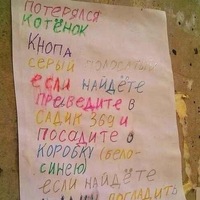 ПОТЕРЯЛСЯ
КОТЁНОК
КНОПА
СЕРЫЙ ПОЛОСАТЫЙ
если НАЙДЁТЕ
ПРЕВЕДИТЕ В
САДИК 369 И
ПОСАДИТЕ В
КОРОБКУ (БЕЛО-
СИНЕЮ)
ЕСЛИ НАЙДЁТЕ
ПОГЛАДИТЬ